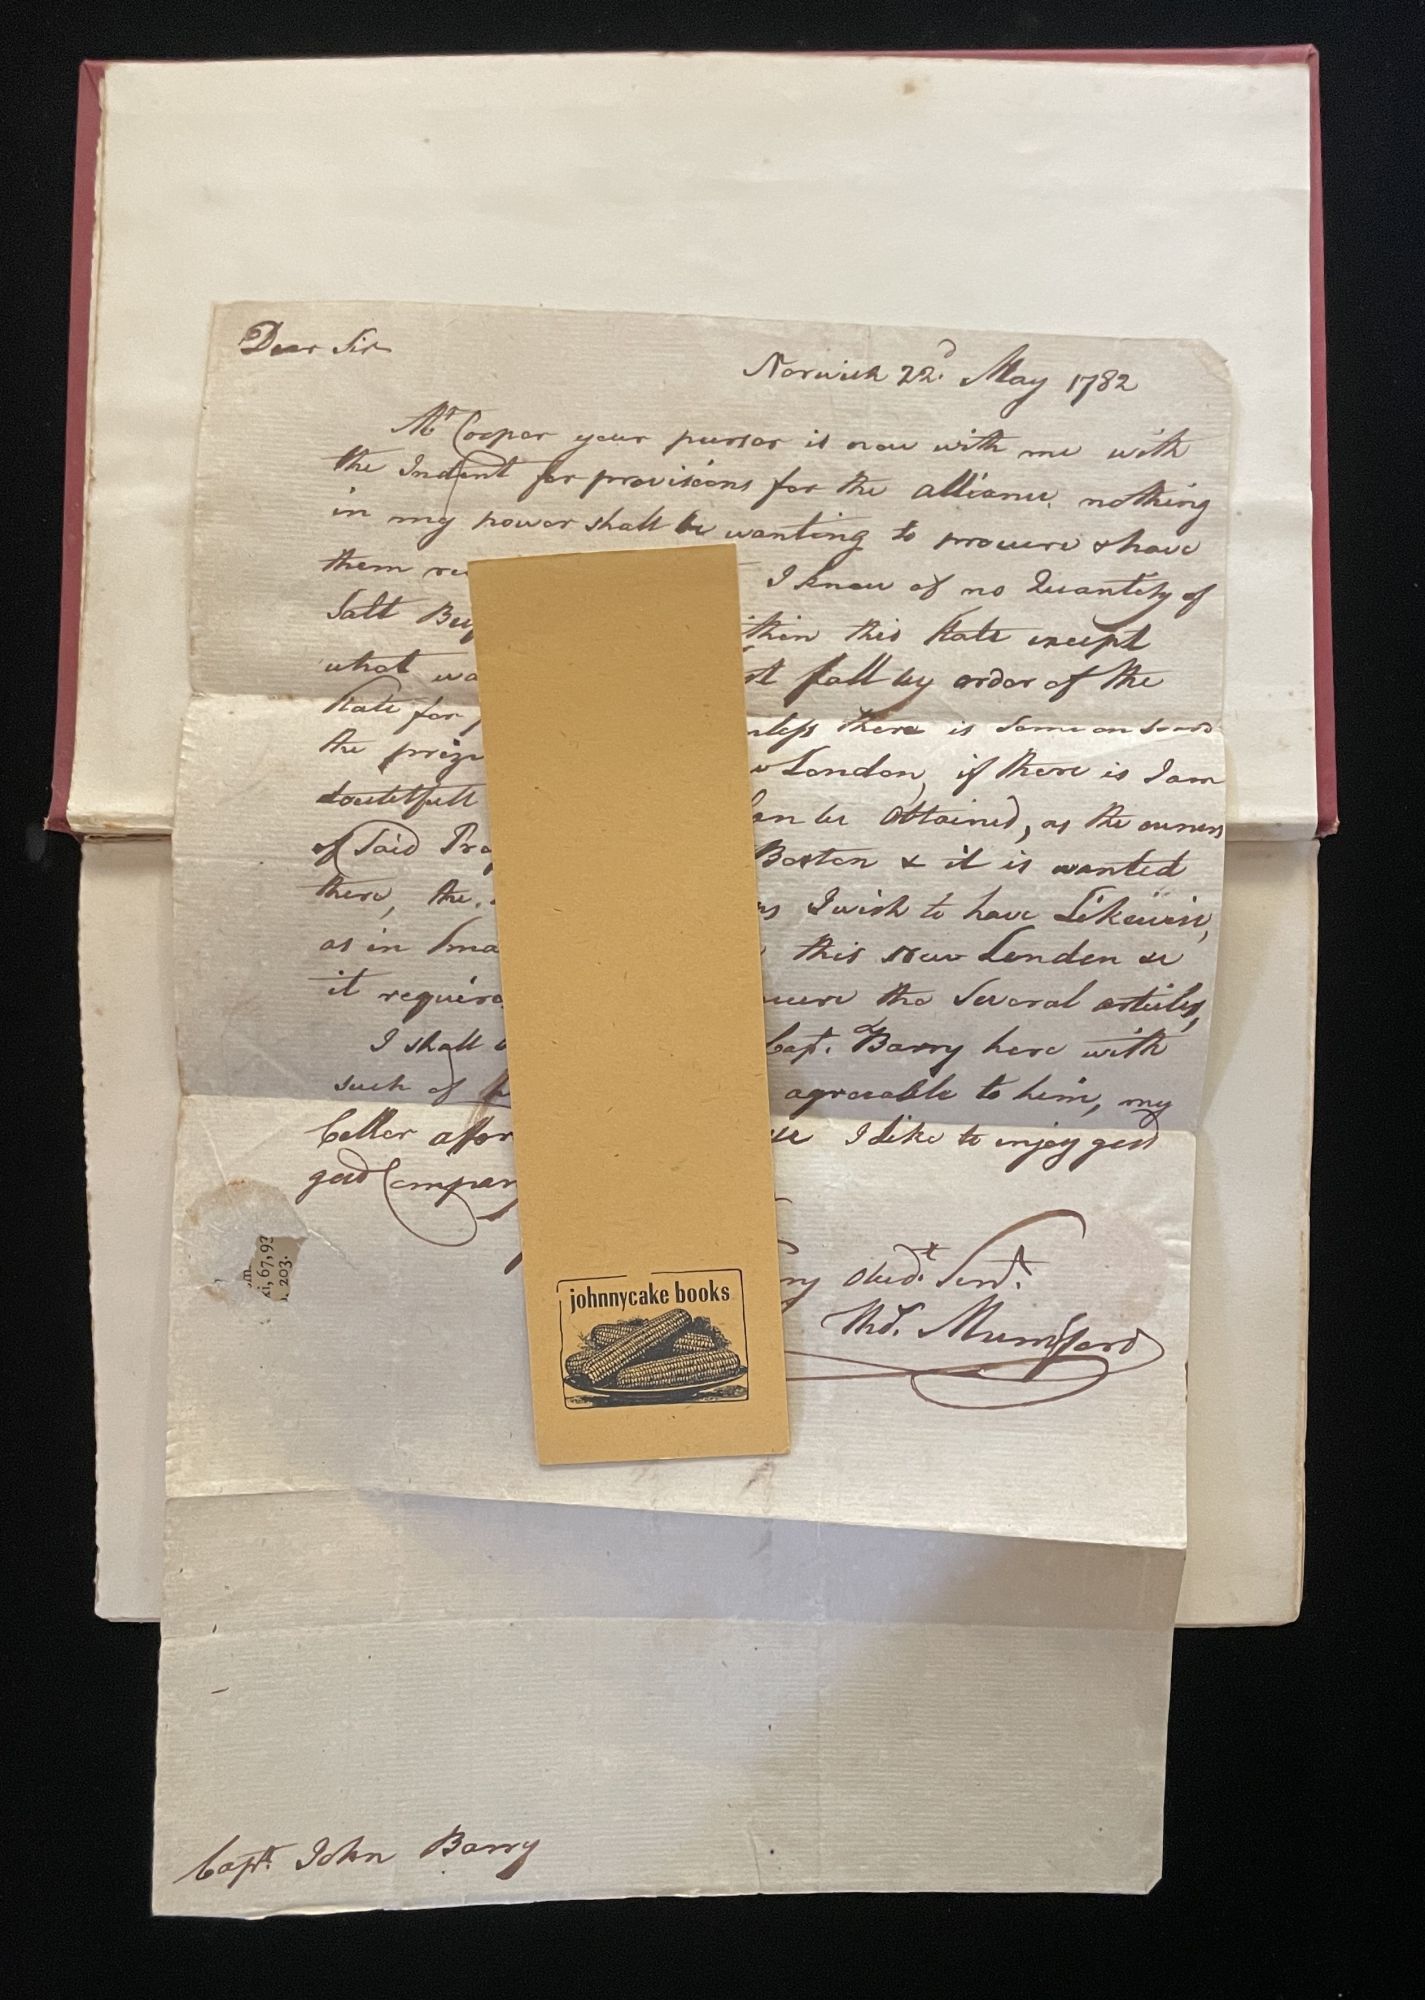 Dear Sir
Norwich 22d May 1782
Mr Cooper your purser is now with me with
the Indent for provisions for the alliance. nothing
in my power shall be wanting to procure & have
them I know of no Quantity of
Salt this State except
what fall by order of the
State for there is some on board
the London, if there is I am
doubtfull be Obtained, as the owners
of Said Boston & it is wanted
there, the I wish to have Likewise,
as in this New London &c
it the Several articles,
I shall Capt. Barry here with
such of agreeable to him, my
Celler I like to enjoy good
good Company
Obedt. Servt.
Thos. Mumford
xi, 67, 93
203.
johnnycake books
Captn. John Barry